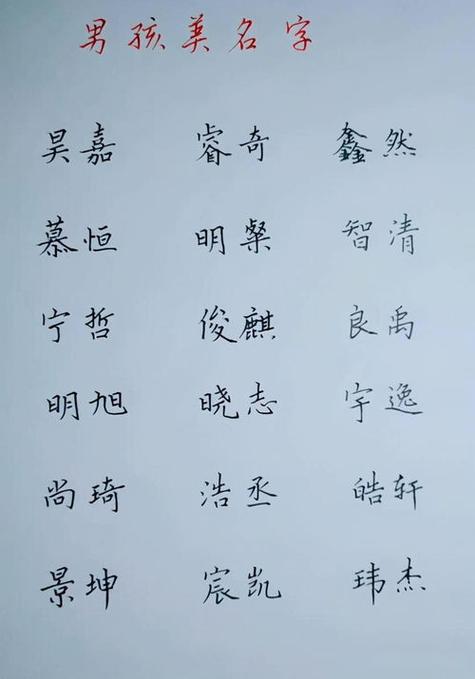 男孩美名字
昊嘉 睿奇 鑫然
慕恒 明粲 智清
宁哲 俊麒 良禹
明旭 晓志 宇逸
尚琦 浩丞 皓轩
景坤 宸凯 玮杰